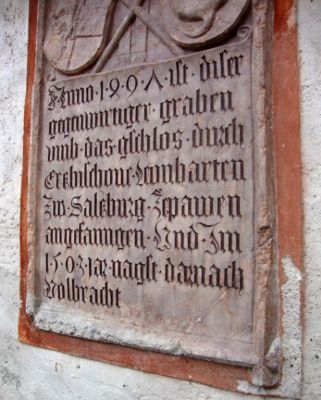 Anno · 1497 · ist · diser
gegenwurtiger · graben
vmb · das · gschlos · durch
Ertzbischoue · Leonharten
Zw · Salzburg · Zepawen
angefanngen · Vnd · Im
1503 · jar · nagst · darnach
Volbracht